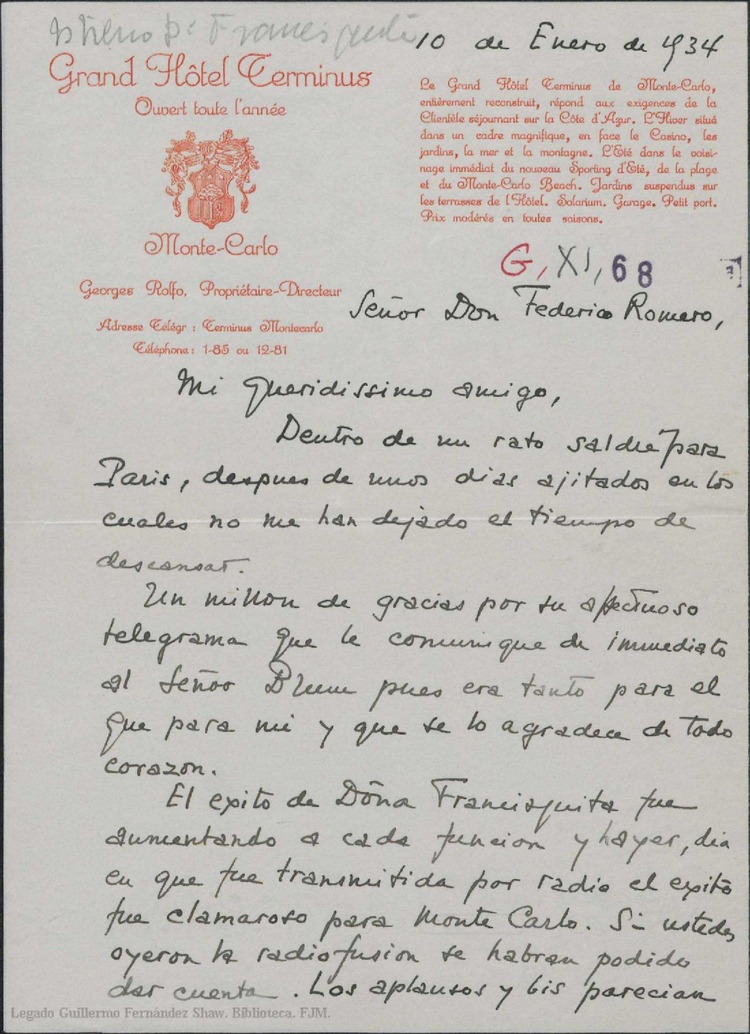 Estreno Dª Francisquita
10 de Enero de 1934
Grand Hôtel Terminus
Ouvert toute l'année
Monte-Carlo
Georges Rolfo, Propriétaire-Directeur
Adresse Télégr : Terminus Montecarlo
Téléphone : 1-85 ou 12-81
Le Grand Hôtel Terminus de Monte-Carlo,
entièrement reconstruit, répond aux exigences de la
Clientèle séjournant sur la Côte d'Azur. L'Hiver situé
dans un cadre magnifique, en face le Casino, les
jardins, la mer et la montagne. L'Eté dans le voisi-
nage immédiat du nouveau Sporting d'Eté, de la plage
et du Monte-Carlo Beach. Jardins suspendus sur
les terrasses de l'Hôtel. Solarium. Garage. Petit port.
Prix modérés en toutes saisons.
G, XI, 68
Señor Don Federico Romero,
Mi queridissimo amigo,
Dentro de un rato saldré para
Paris, despues de unos dias ajitados en los
cuales no me han dejado el tiempo de
descansar.
Un millon de gracias por su afectuoso
telegrama que le comunique de immediato
al Señor Blum pues era tanto para el
que para mi y que se lo agradece de todo
corazon.
El exito de Doña Francisquita fue
aumentando a cada funcion y hayer, dia
en que fue transmitida por radio el exito
fue clamaroso para Monte Carlo. Si ustedes
oyeron la radiofusion se habran podido
dar cuenta. Los aplausos y bis parecian
Legado Guillermo Fernández Shaw. Biblioteca. FJM.